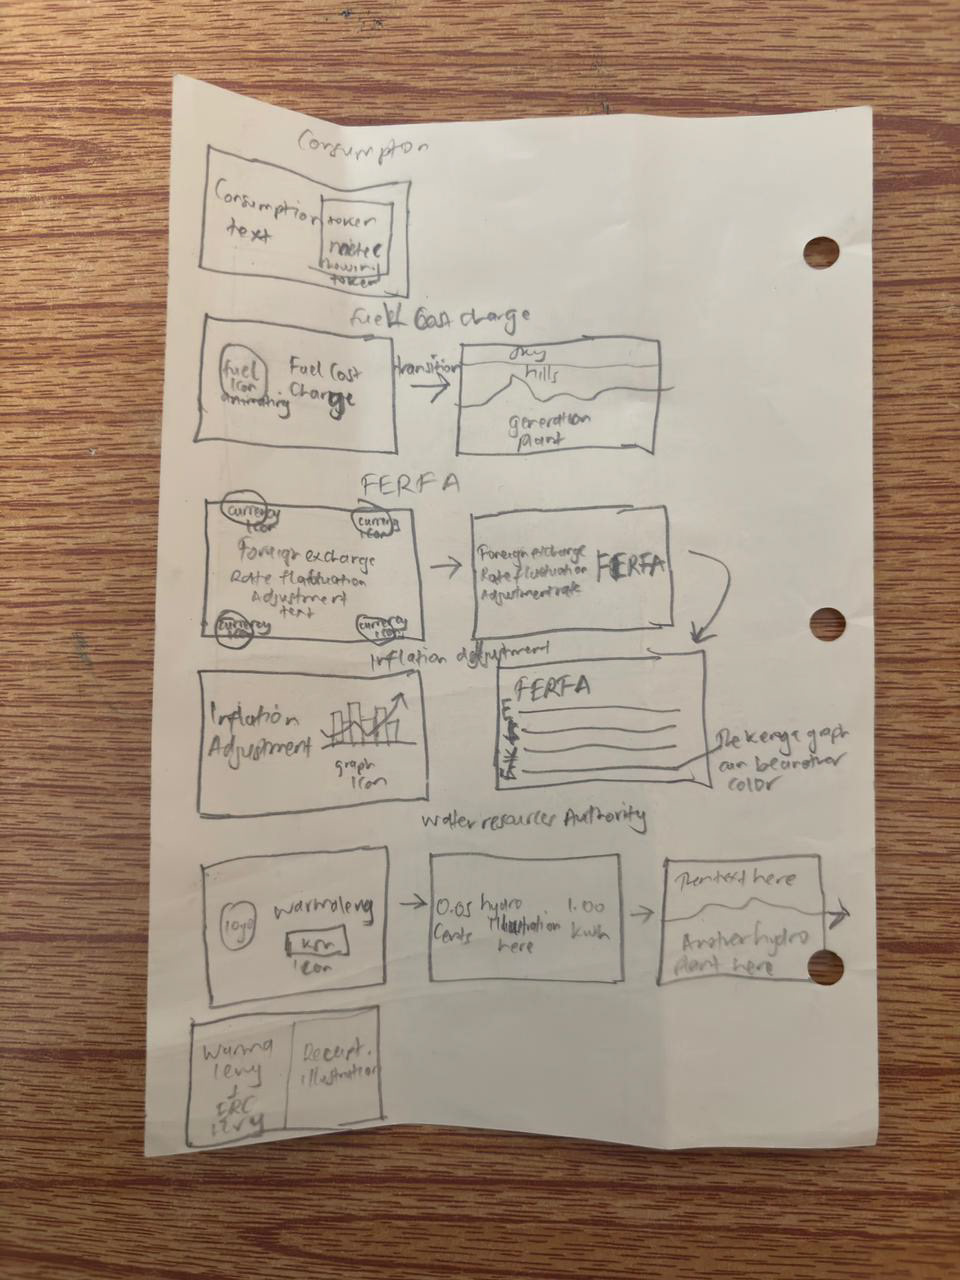 Consumption
Consumption
text
token
meter
showing
token
Fuel Cost charge
fuel
icon
animating
Fuel Cost
Charge
transition
sky
hills
generation
plant
FERFA
currency
icon
currency
icon
Foreign exchange
Rate fluctuation
Adjustment
text
currency
icon
currency
icon
Foreign exchange
Rate fluctuation
Adjustment rate
FERFA
Inflation adjustment
Inflation
Adjustment
graph
icon
FERFA
The kenya graph
can be another
color
Water resources Authority
logo
warma levy
icon
0.05
Cents
hydro
Illustration
here
1.00
kwh
Then text here
Another hydro
plant here
Warma
levy
+
ERC
levy
Receipt
illustration